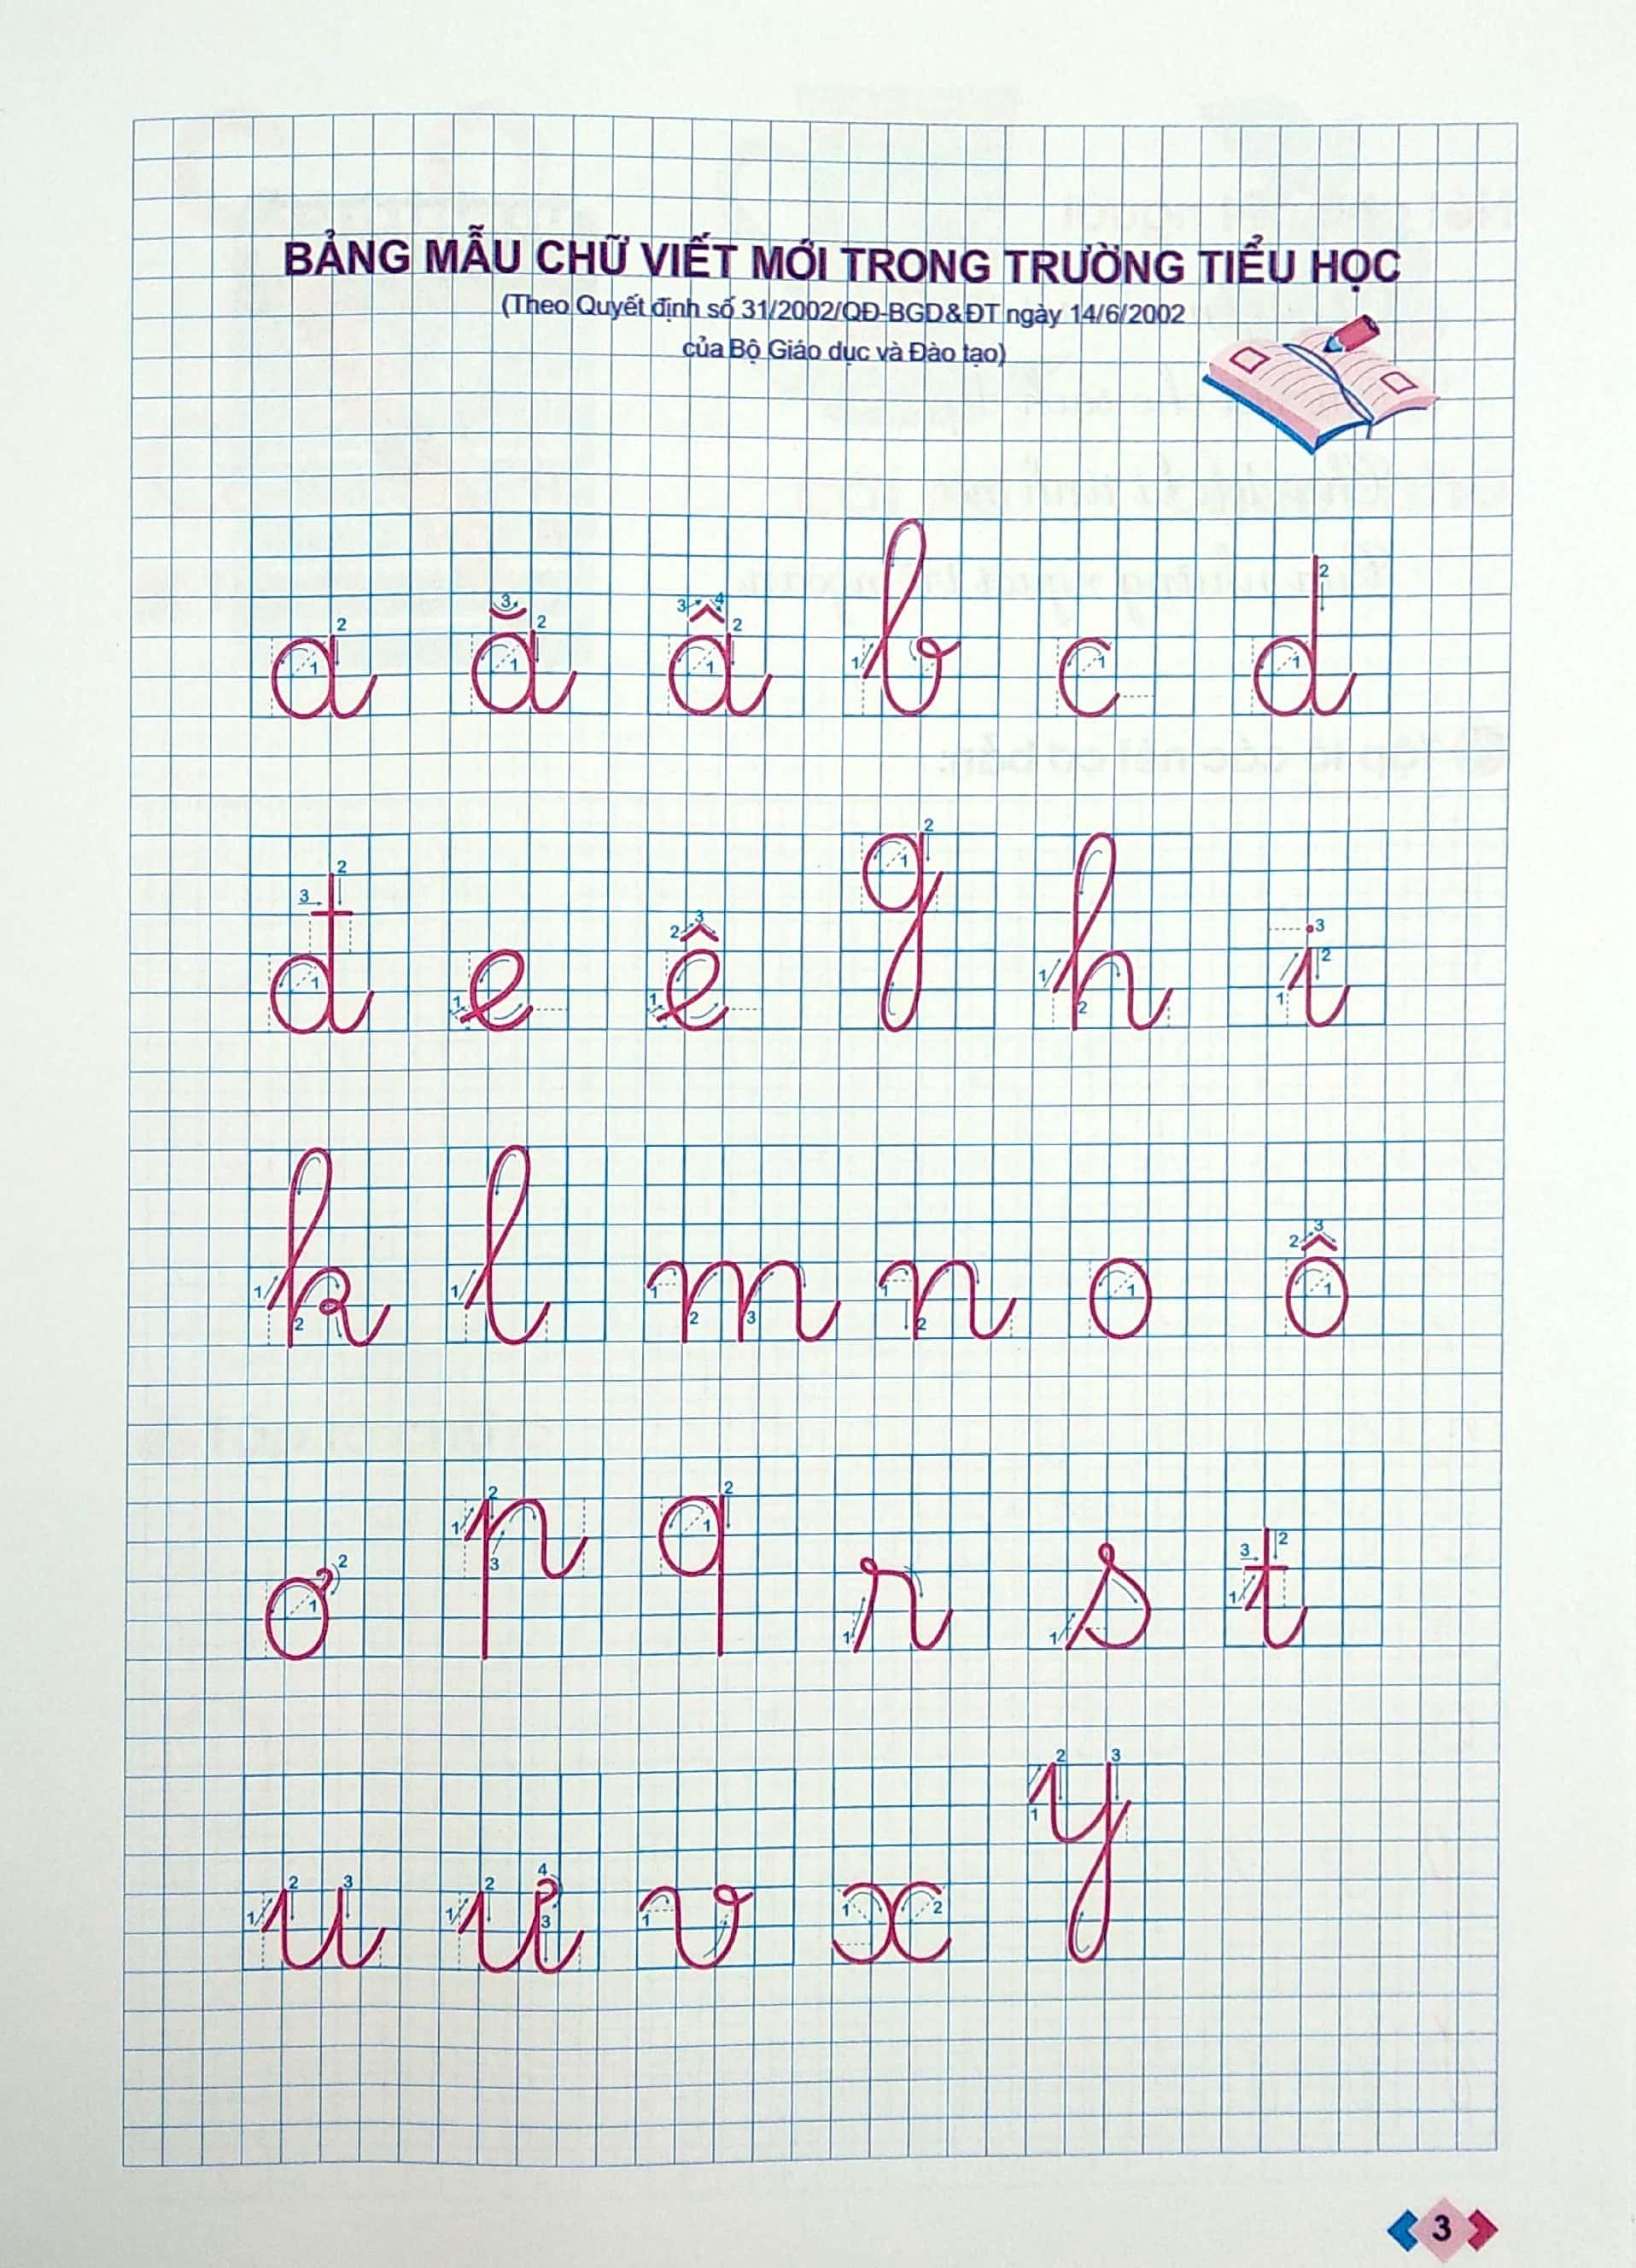 BẢNG MẪU CHỮ VIẾT MỚI TRONG TRƯỜNG TIỂU HỌC
(Theo Quyết định số 31/2002/QĐ-BGD&ĐT ngày 14/6/2002
của Bộ Giáo dục và Đào tạo)
a ă â b c d
đ e ê g h i
k l m n o ô
ơ p q r s t
u ư v x y
3